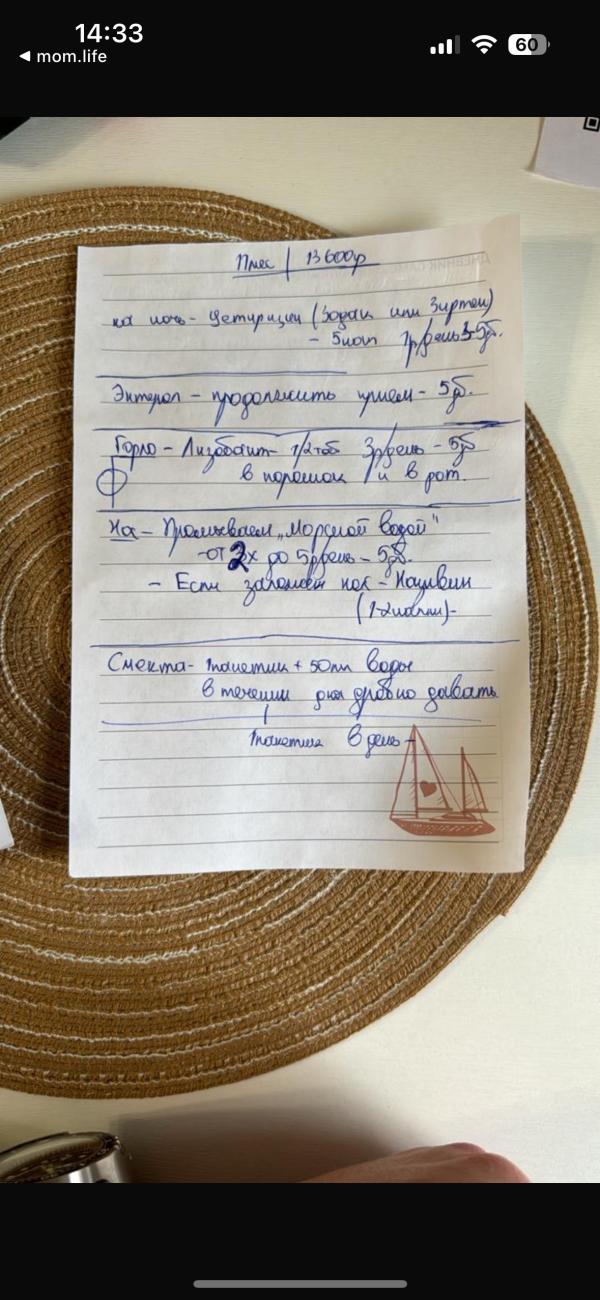 14:33
60
mom.life
11мес | 13 600гр
на ночь - Цетиризин (Зодак или Зиртек)
- 5кап 1р/день - 5д.
Энтерол - продолжить прием - 5д.
Горло - Лизобакт 1/2таб 3р/день - 5д
в порошок и в рот.
Нос - Промываем „Морской водой"
- от 2х до 5р/день - 5дн.
- Если заложен нос - Називин
(1-2капли)-
Смекта - 1пакетик + 50мл воды
в течении дня дробно давать
1пакетик в день -